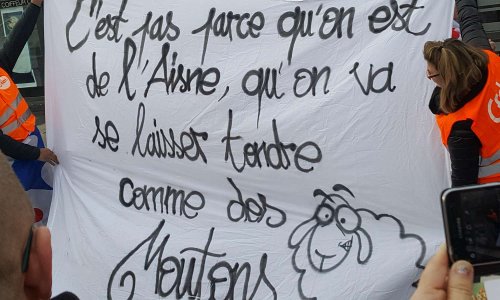 C'est pas parce qu'on est
de l'Aisne, qu'on va
se laisser tondre
comme des
Moutons